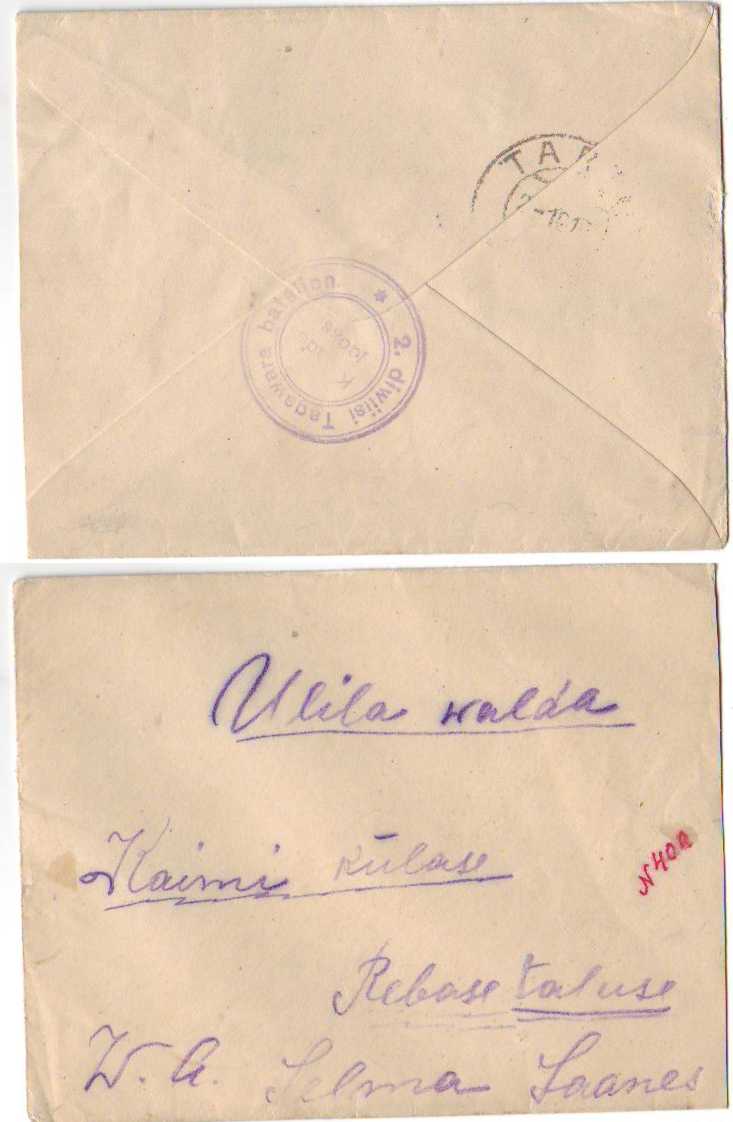 TAR
2. diwiisi Tagawara bataljon. *
Ulila walda
Kaimi külase
N 40a
Rebase taluse
W. A. Selma Saanes